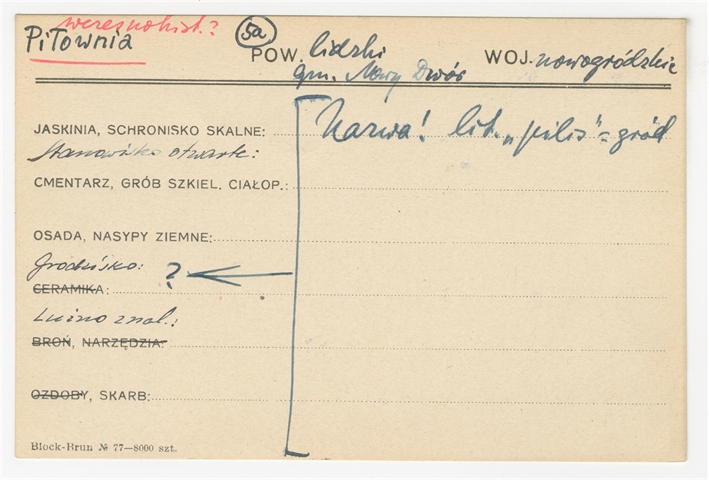 wczesnohist.?
Piłownia 5a POW. lidzki WOJ. nowogródzkie
gm. Nowy Dwór
Nazwa! lit. „pilis" = gród
JASKINIA, SCHRONISKO SKALNE:
Stanowisko otwarte:
CMENTARZ, GRÓB SZKIEL. CIAŁOP.:
OSADA, NASYPY ZIEMNE:
Grodzisko: ?
CERAMIKA:
Luźno znal.:
BROŃ, NARZĘDZIA:
OZDOBY, SKARB:
Block-Brun № 77—8000 szt.